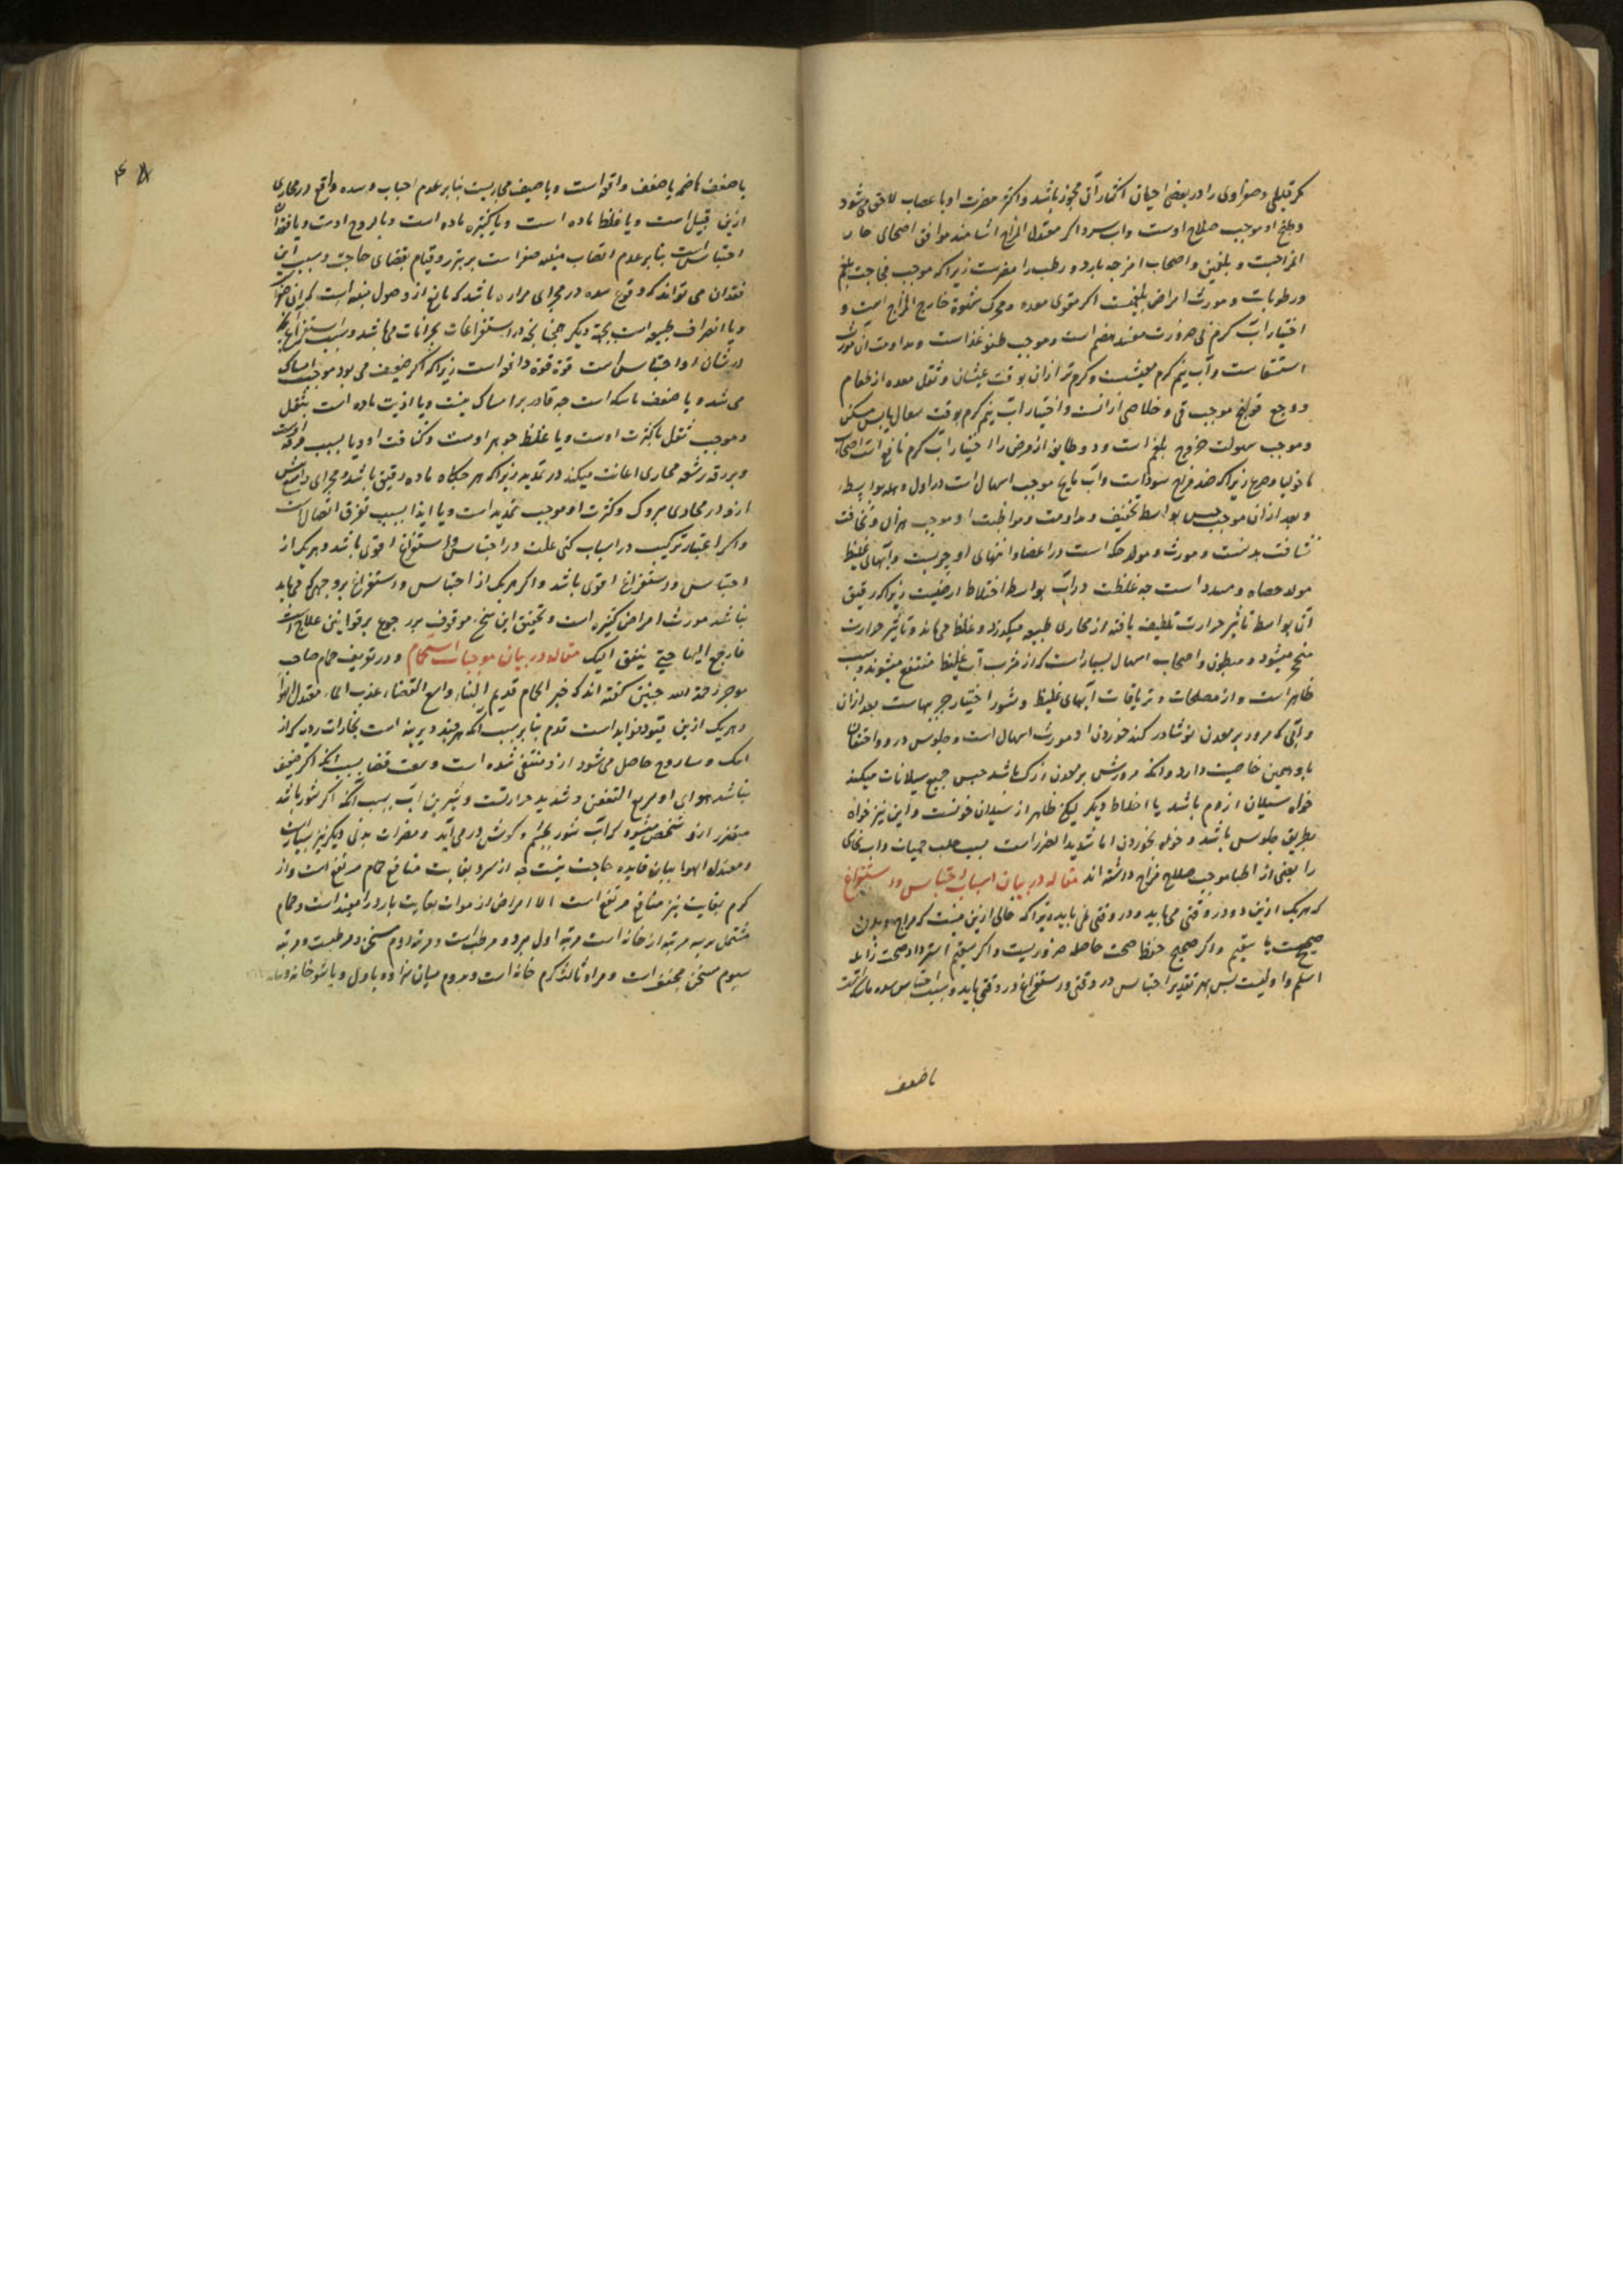 که قلیلی و صفراوی را در بعضی احیان اکثار آن مجوز باشد و اکثر مضرت او با عصاب لاحق می شود
و طبخ او موجب صلاح اوست و اب سرد اگر معتدل المزاج اشامند موافق اصحای حار
المزاجست و بلغمین و اصحاب امزجه بارد و رطب را مضرست زیرا که موجب فجاجت بلغم
و رطوبات و مورث امراض بلغمیست اگر مقوی معده و محرک شهوة خارج المزاج است و
اختیار آب گرم بی ضرورت مفسد هضم است و موجب طفو غذاست و مداومت آن مورث
استسقاست و آب نیم گرم مغثیست و گرم تر ازان بوقت غثیان و ثقل معده از طعام
و وجع قولنج موجب قی و خلاصی ازانست و اختیار آب نیم گرم بوقت سعال یابس مسکن
و موجب سهولت خروج بلغم است و دو طایفه از مرض را اختیار آب گرم نافع است اصحاب
مالخولیا و صرع زیرا که ضد مزاج سوداست و آب مالح موجب اسهال است در اول وهله بواسطه
و بعد ازان موجب حبس بواسطه تجفیف و مداومت و مواظبت او موجب هزال و نحافت
نشافت بدنست و مورث و مولد حکه است در اعضا و انتهای او جربست و آبهای غلیظ
مولد حصاه و سدد است چه غلظت در آب بواسطه اختلاط ارضیت زیرا که رقیق
آن بواسطه تاثیر حرارت تلطیف یافته از مجاری طبیعه میگذرد و غلظ می ماند و تاثیر حرارت
منحجر میشود و مبطون و اصحاب اسهال بسیار است که از شرب آب غلیظ منتفع میشوند و سبب
ظاهر است و از مصلحات و تریاقات آبهای غلیظ و شور اختیار چربیهاست بعد ازان
و آبی که مرور بر معدن نوشادر کند خوردن او مورث اسهال است و جلوس در و و احتقان
باو همین خاصیت دارد و آنکه مرورش بر معدن زاک باشد حبس جمیع سیلانات میکند
خواه سیلان از دم باشد یا اخلاط دیگر لیکن ظاهر از سیلان خونست و این نیز خواه
بطریق جلوس باشد و خواه بخوردن اما شدید الضرر است بسبب جلب حمیات و اب نحاسی
را بعضی از اطبا موجب صلاح مزاج دانسته اند مقاله در بیان اسباب احتباس و استفراغ
که هریک ازین دو در وقتی می باید و در وقتی نمی باید زیرا که خالی ازین نیست که مزاج و بدن
صحیحست یا سقیم و اگر صحیح حفظ صحت حاصله ضروریست و اگر سقیم استرداد صحت زایله
اسلم و اولیست پس بهر تقدیر احتباس در وقتی و استفراغ در وقتی باید و سبب احتباس
با ضعف
یا ضعف هاضمه یا ضعف دافعه است و یا ضیق مجاریست بنابر عدم اجتناب و سده واقع در مجاری
ازین قبیل است و یا غلظ ماده است و یا کثره ماده است و یا لزوج اوست و یا فقدان
احتباس است بنابر عدم انصباب منبهه صفراست بر تبرز و قیام بقضای حاجت و سبب این
فقدان می تواند که وقوع سده در مجرای مراره باشد که مانع از وصول منبهه است
و یا انصراف طبیعه است بجهة دیگر چنانچه در استفراغات بحرانات می باشد و سبب استفراغ
در شان او احتباس است قوة قوه دافعه است زیرا که اگر ضعیف می بود موجب امساک
می شد و یا ضعف ماسکه است چه قادر بر امساک نیست و یا اذیت ماده است بثقل
و موجب ثقل یا کثرت اوست و یا غلظ جوهر اوست و کثافت او و یا بسبب
و بر رقه رشفه مجاری اعانت میکند در تمدید زیرا که هر جا که ماده رقیق باشد و مجرای واسع
ازو در مجاری متروک و کثرت او موجب تمدید است و یا ایذا بسبب تفرق اتصال است
و اگر اعتبار ترکیب در اسباب کنی علت در احتباس و استفراغ اقوی باشد و هریک از
احتباس و استفراغ اقوی باشد و اگر هریک از احتباس و استفراغ بر وجهی که می باید
نباشد مورث امراض کثیره است و تحقیق این سخن موقوف بر رجوع بر قوانین علاج است
فارجع الیها حتی یتفق الیک مقاله در بیان موجبات استحمام و در تعریف حمام صاحب
موجز رحمة الله چنین گفته اند که خیر الحمام قدیم البناء واسع الفضاء عذب الماء معتدل الهوا
و هریک ازین قیود فواید است قدم بنابر سبب آنکه هرچند دیرینه است بخارات ردیه که از
آهک و ساروج حاصل می شود ازو منتفی شده است و سعت فضا بسبب انکه اگر ضیق
باشد هوای او سریع التعفن و شدید حرارتست و شیرین اب بسبب آنکه اگر شور باشد
متضرر ازو شخص میشود که آب شور بچشم و گوش در می آید و مضرات بدنی دیگر نیز بسیار است
و معتدل الهوا ببیان فایده حاجت نیست چه از سرد بغایت منافع حمام مرتفع است و از
گرم بغایت نیز منافع مرتفع است الا امراض از مواد بغایت بارد را مفید است و حمام
مشتمل بر سه مرتبه از خانه است مرتبه اول مبرد و مرطب است و مرتبه دوم مسخن و مرطبست و مرتبه
سیوم مسخن مجفف است و مراد ثالث گرم خانه است و دوم میان سرا ده و باول